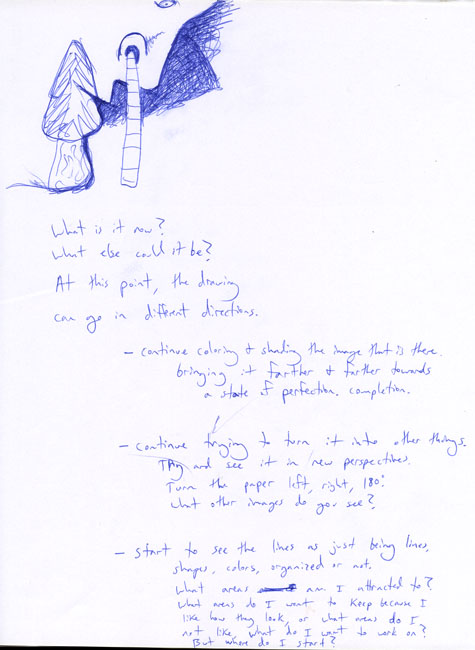 What is it now?
What else could it be?
At this point, the drawing
can go in different directions.
- continue coloring & shading the image that is there.
bringing it farther & farther towards
a state of perfection. completion.
- continue trying to turn it into other things.
Try and see it in new perspectives.
Turn the paper left, right, 180°.
What other images do you see?
- start to see the lines as just being lines,
shapes, colors, organized or not.
What areas am I attracted to?
What areas do I want to keep because I
like how they look, or what areas do I
not like. What do I want to work on?
But where do I start?